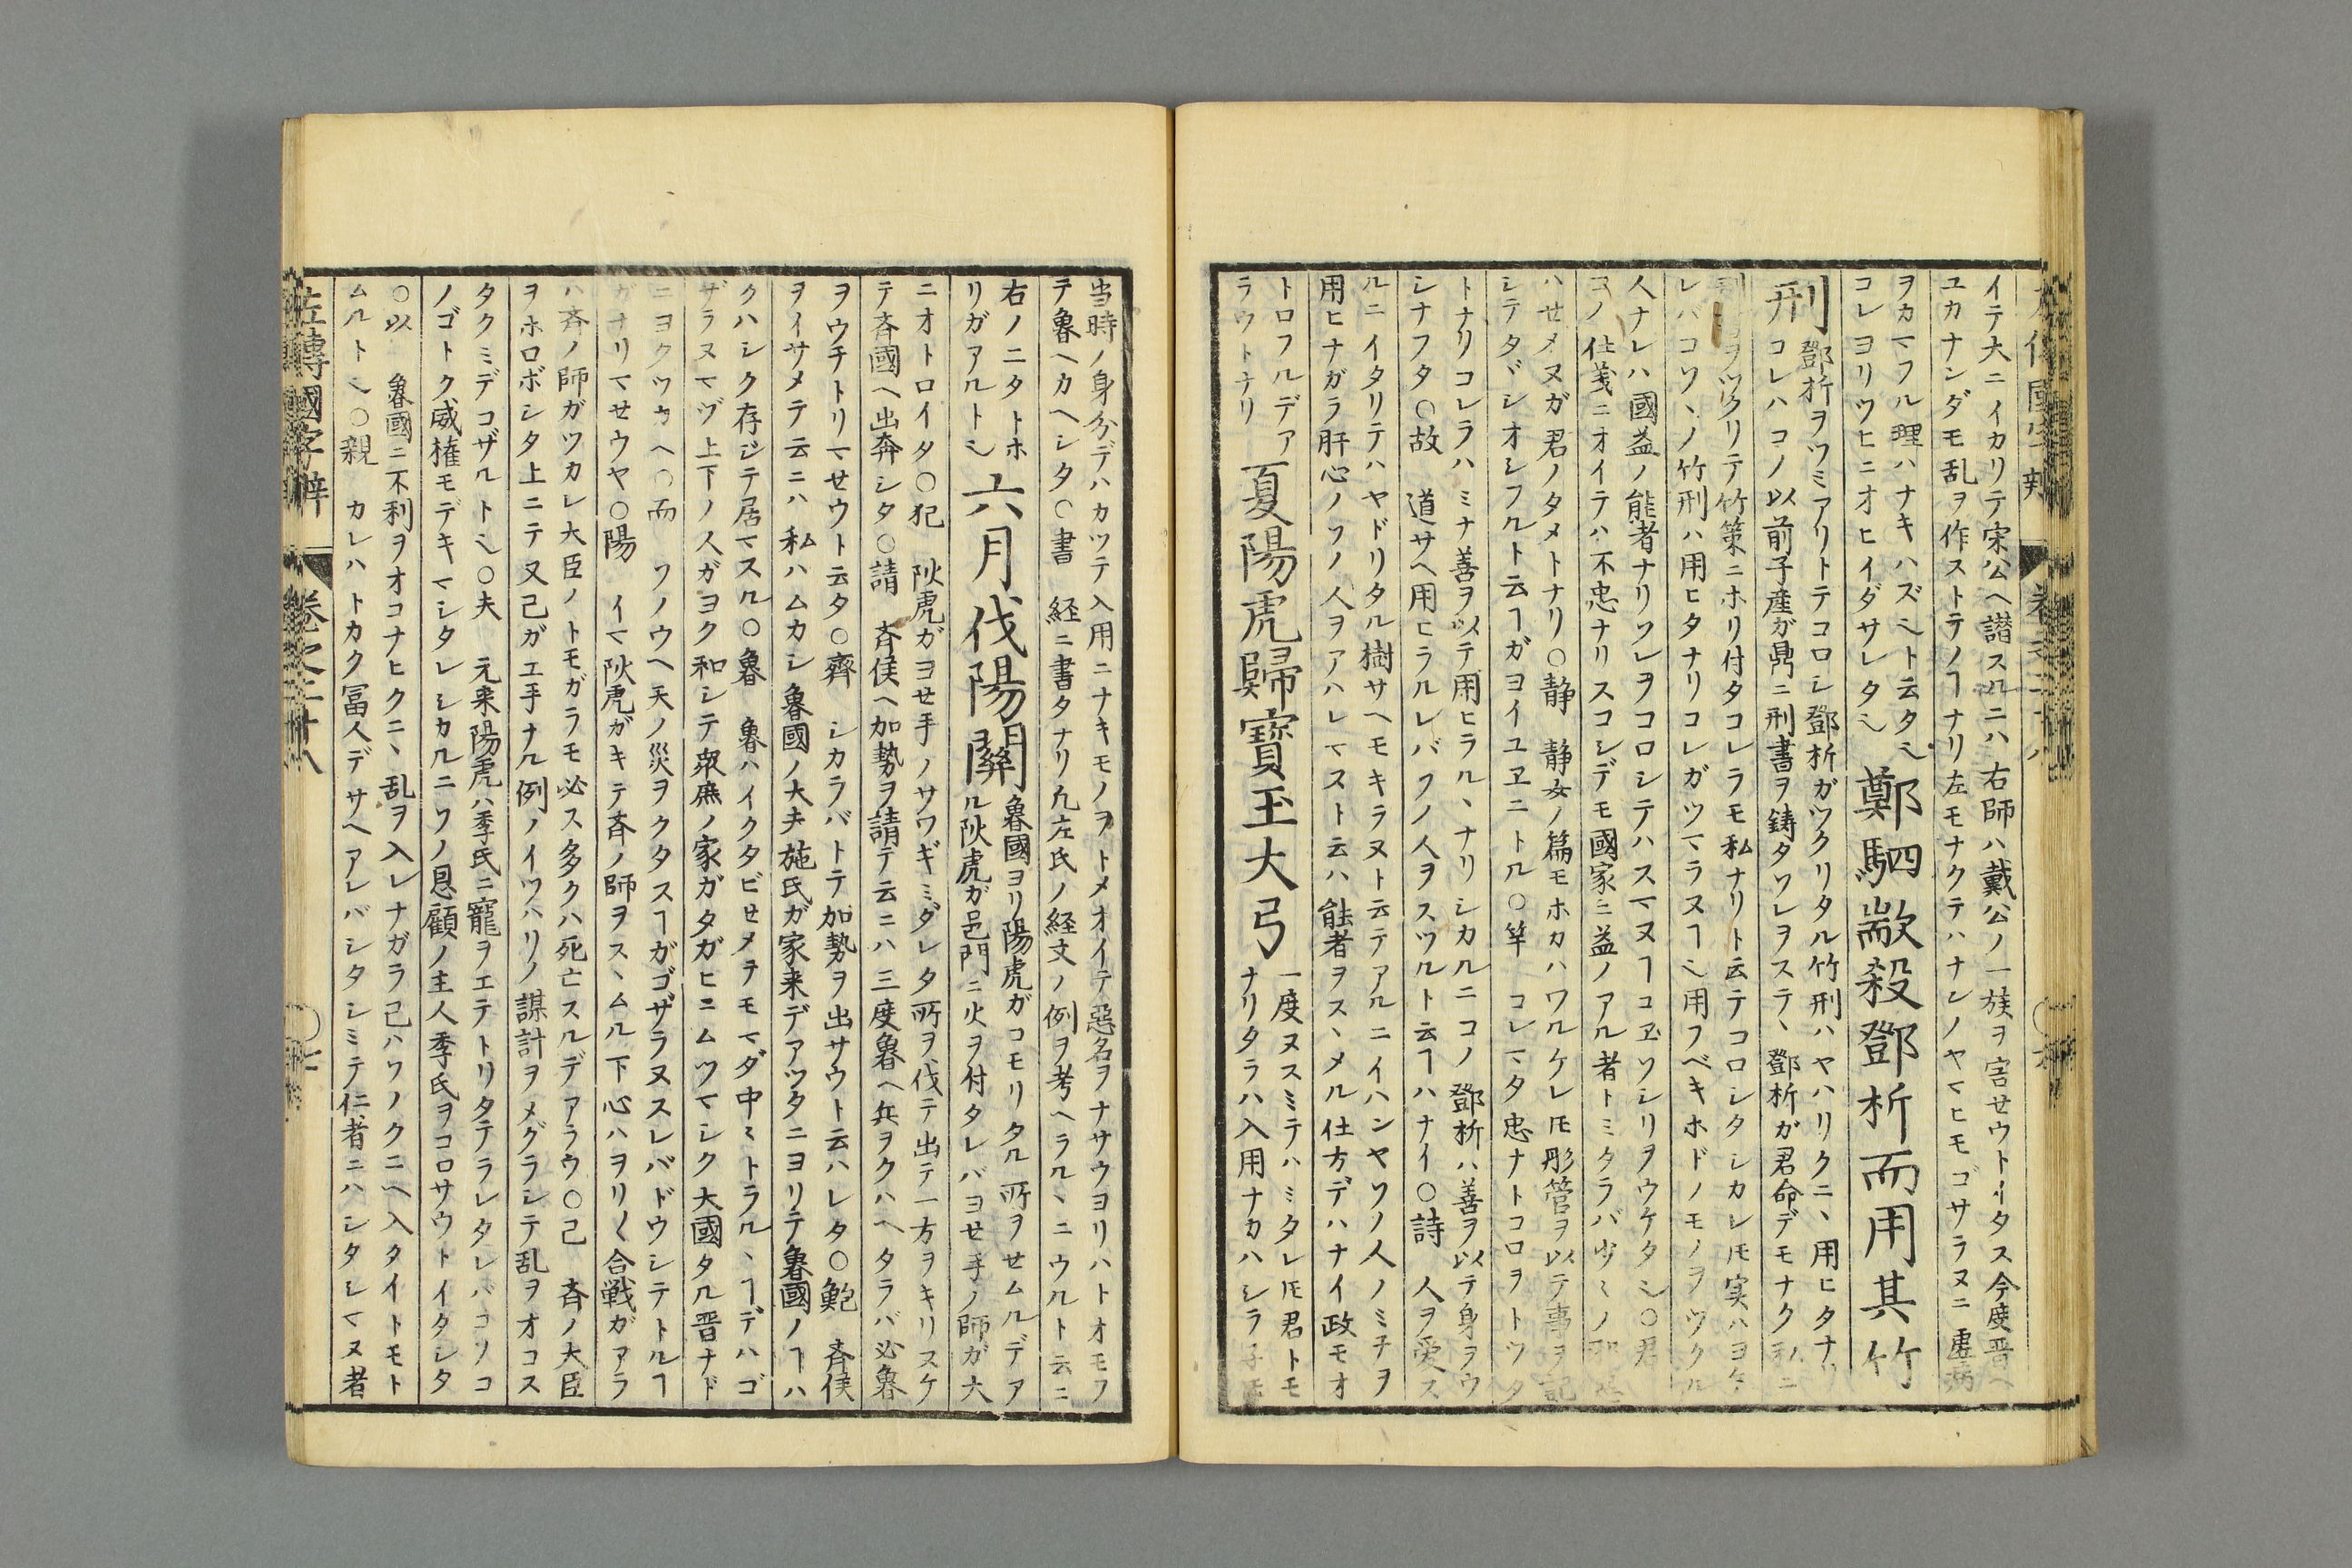 イテ大ニイカリテ宋公ヘ譖スルニハ右師ハ戴公ノ一族ヲ害セウトイタス今度晋ヘ
ユカナンダモ乱ヲ作ストテノヿナリ左モナクテハナンノヤマヒモゴサラヌニ虚病
ヲカマフル理ハナキハズ〻ト云タ〻
コレヨリツヒニオヒイダサレタ〻
鄭駟歂殺鄧析而用其竹
刑
鄧析ヲツミアリトテコロシ鄧析ガツクリタル竹刑ハヤハリクニヽ用ヒタナリ
コレハコノ以前子産ガ鼎ニ刑書ヲ鋳タソレヲステヽ鄧析ガ君命デモナク私ニ
ヲツクリテ竹策ニホリ付タコレラモ私ナリト云テコロシタシカレ𪜈実ハヨケ
レバコソヽノ竹刑ハ用ヒタナリコレガツマラヌヿ〻用フベキホドノモノヲツクル
人ナレハ國益ノ能者ナリソレヲコロシテハスマヌヿコヱソシリヲウケタ〻○君
コノ仕義ニオイテハ不忠ナリスコシデモ國家ニ益ノアル者トミタラバ少〻ノ
ハセメヌガ君ノタメトナリ○静　静女ノ篇モホカハワルケレ𪜈彤管ヲ以テ事ヲ記
シテタヾシオシフルト云ヿガヨイユヱニトル○竿　コレマタ忠ナトコロヲトツタ
トナリコレラハミナ善ヲ以テ用ヒラルヽナリシカルニコノ鄧析ハ善ヲ以テ身ヲウ
シナフタ○故　道サヘ用ヒラルレバソノ人ヲスツルト云ヿハナイ○詩　人ヲ愛ス
ルニイタリテハヤドリタル樹サヘモキラヌト云テアルニイハンヤソノ人ノミチヲ
用ヒナガラ肝心ノソノ人ヲアハレマスト云ハ能者ヲスヽメル仕方デハナイ政モオ
トロフルデア
ラウトナリ
夏陽虎歸寶玉大弓
一度ヌスミテハミタレ𪜈君トモ
ナリタラハ入用ナカハシラ
当時ノ身分デハカツテ入用ニナキモノヲトメオイテ惡名ヲナサウヨリハトオモフ
テ魯ヘカヘシタ○書　経ニ書タナリ凢左氏ノ経文ノ例ヲ考ヘラルヽニウルト云ニ
右ノニタトホ
リガアルト〻
六月伐陽關
魯國ヨリ陽虎ガコモリタル所ヲセムルデア
ル陽虎ガ邑門ニ火ヲ付タレバヨセ手ノ師ガ大
ニオトロイタ○犯　陽虎ガヨセ手ノサワギミダレタ所ヲ伐テ出テ一方ヲキリスケ
テ斉國ヘ出奔シタ○請　斉侯ヘ加勢ヲ請テ云ニハ三度魯ヘ兵ヲクハヘタラバ必魯
ヲウチトリマセウト云タ○齊　シカラバトテ加勢ヲ出サウト云ハレタ○鮑　斉侯
ヲイサメテ云ニハ私ハムカシ魯國ノ大夫施氏ガ家来デアツタニヨリテ魯國ノヿハ
クハシク存ジテ居マスル○魯　魯ハイクタビセメテモマダ中〻トラルヽヿデハゴ
ザラヌマヅ上下ノ人ガヨク和シテ衆庶ノ家ガタガヒニムツマシク大國タル晋ナド
ニヨクツカヘ○而　ソノウヘ天ノ災ヲクタスヿガゴザラヌスレバドウシテトルヿ
ガナリマセウヤ○陽　イマ陽虎ガキテ斉ノ師ヲスヽムル下心ハヲリ〱合戦ガアラ
ハ斉ノ師ガツカレ大臣ノトモガラモ必ス多クハ死亡スルデアラウ○己　斉ノ大臣
ヲホロボシタ上ニテ又己ガエ手ナル例ノイツハリノ謀計ヲメグラシテ乱ヲオコス
タクミデコザルト〻○夫　元来陽虎ハ季氏ニ寵ヲエテトリタテラレタレバコソコ
ノゴトク威権モデキマシタレシカルニソノ恩顧ノ主人季氏ヲコロサウトイタシタ
○以　魯國ニ不利ヲオコナヒクニヽ乱ヲ入レナガラ己ハソノクニヘ入タイトモト
ムルト〻○親　カレハトカク冨人デサヘアレバシタシミテ仁者ニハシタシマヌ者
左傳國字辯　卷之二十八